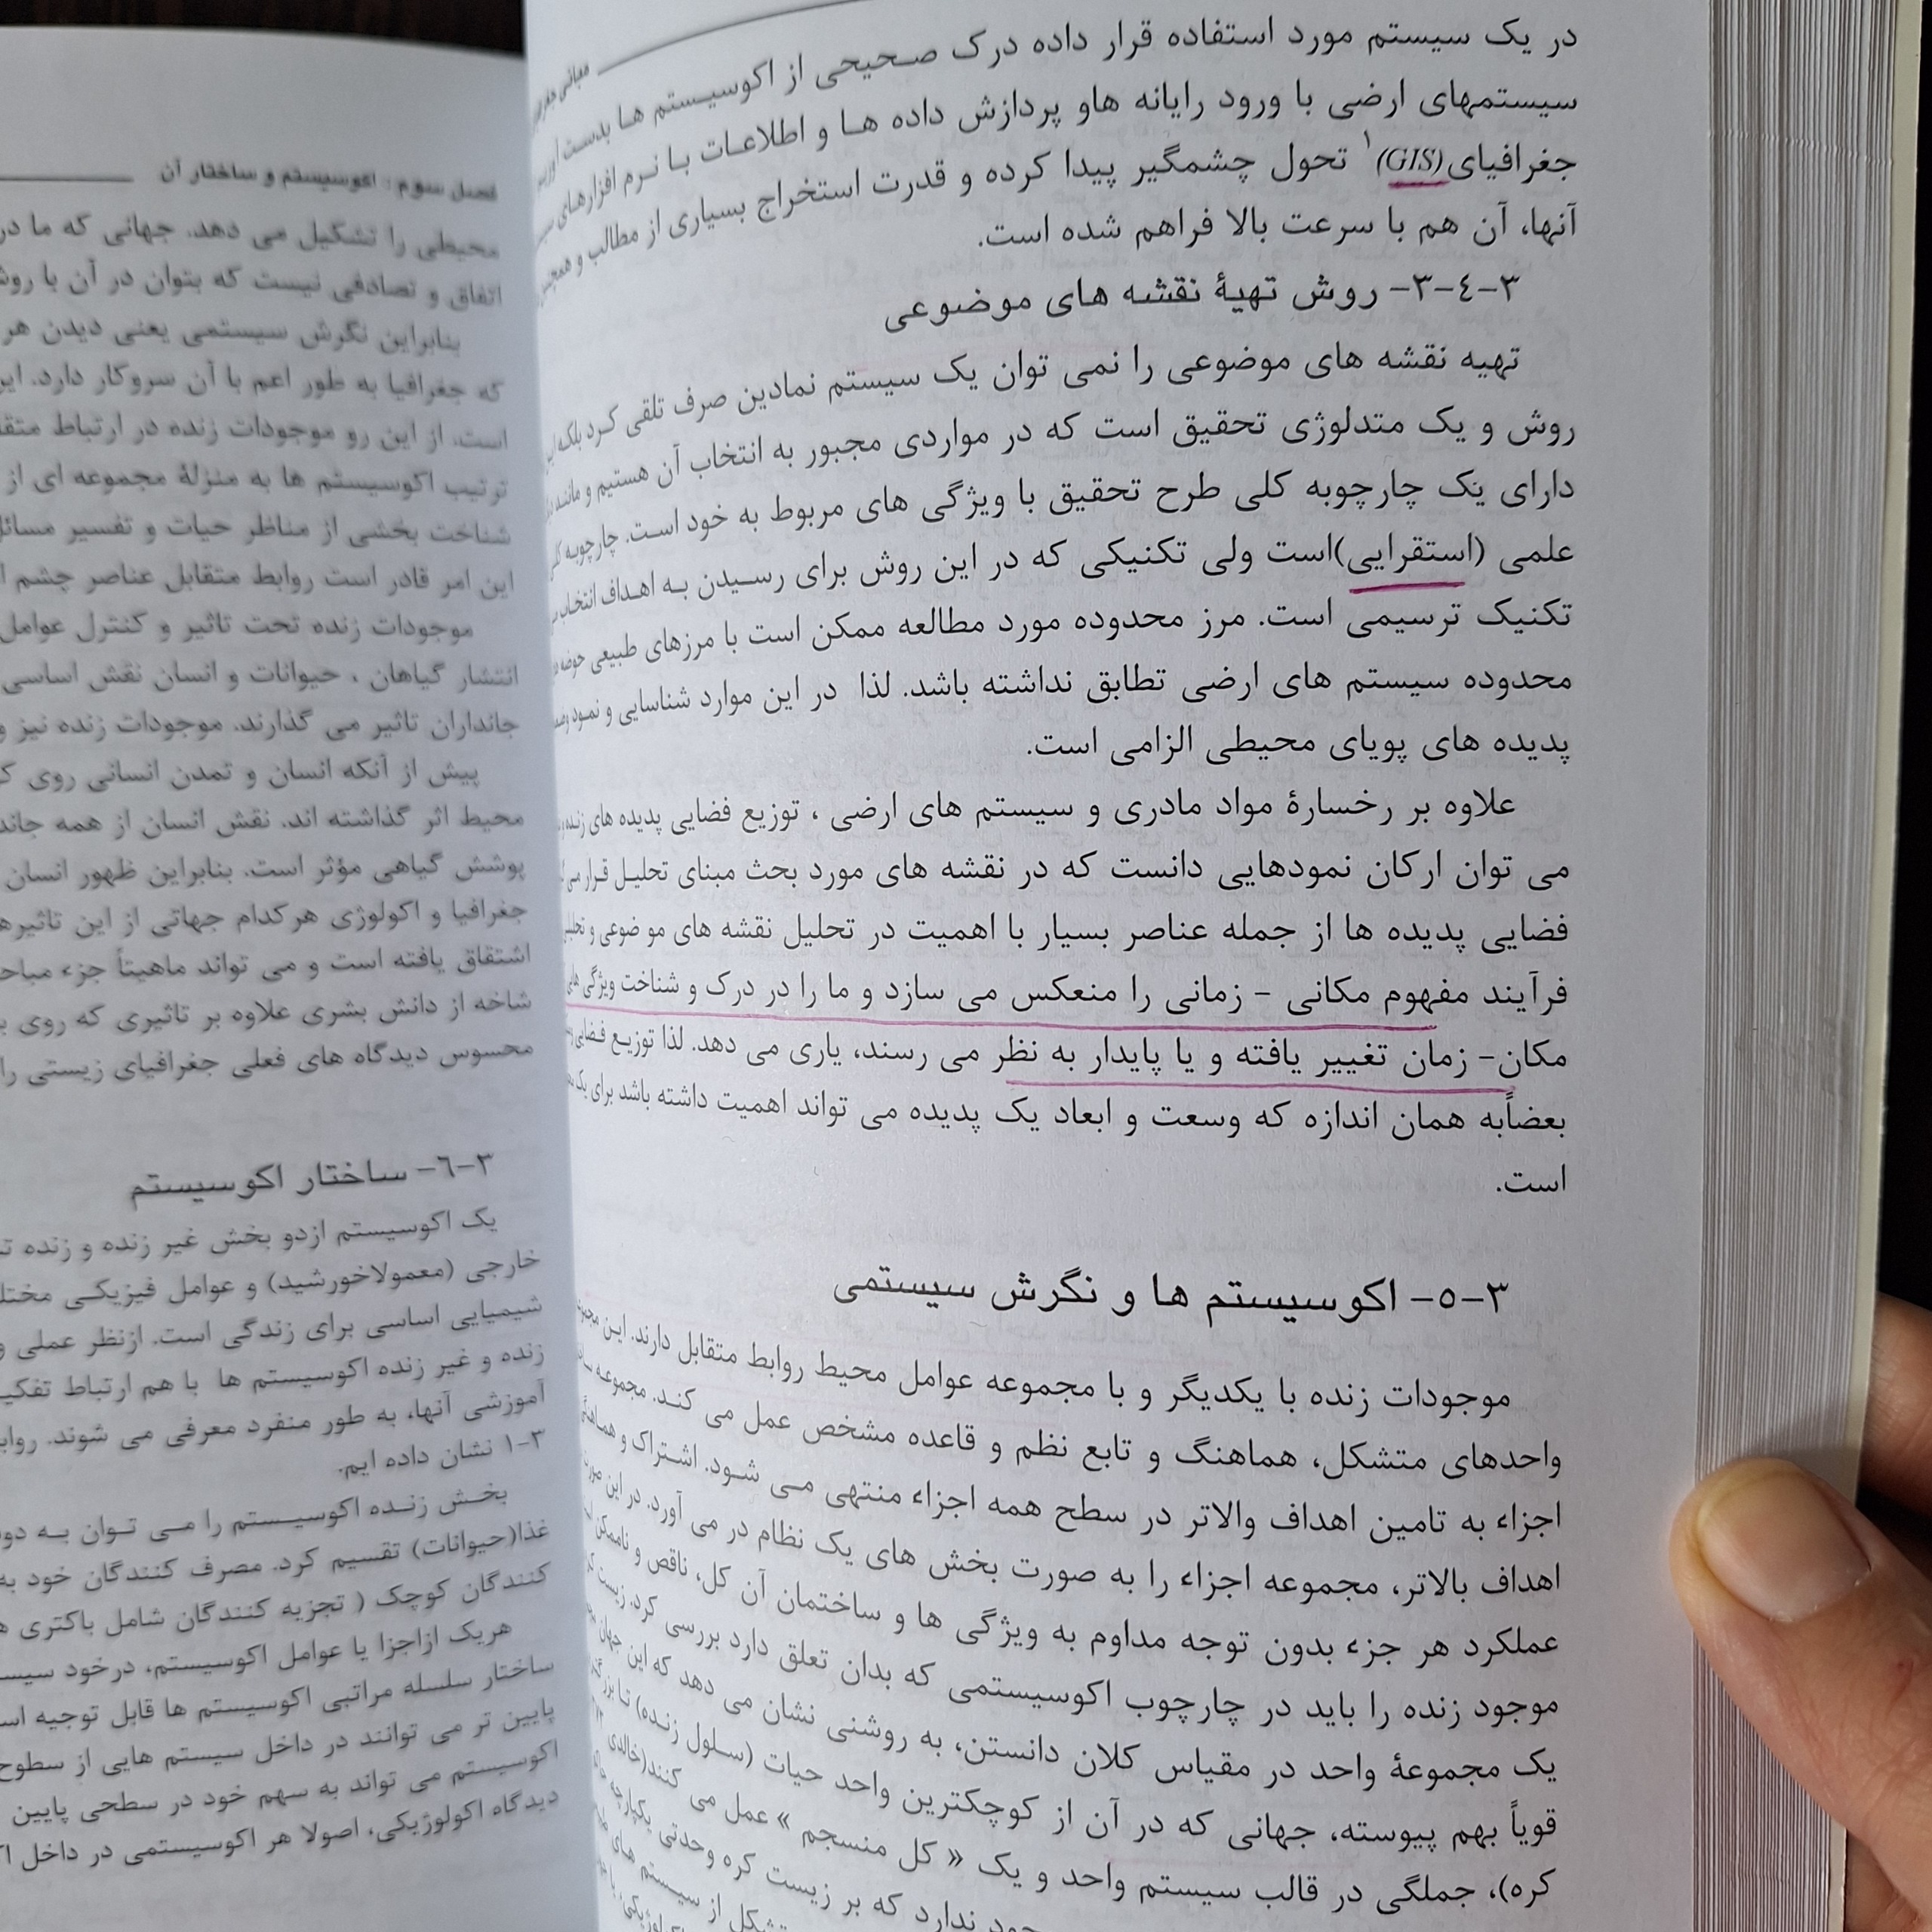 در یک سیستم مورد استفاده قرار داده درک صحیحی از اکوسیستم ها بدست
سیستمهای ارضی با ورود رایانه هاو پردازش داده ها و اطلاعات با نرم افزارهای
جغرافیای(GIS)۱ تحول چشمگیر پیدا کرده و قدرت استخراج بسیاری از مطالب و همچنین
آنها، آن هم با سرعت بالا فراهم شده است.
۳-۴-۳- روش تهیۀ نقشه های موضوعی
تهیه نقشه های موضوعی را نمی توان یک سیستم نمادین صرف تلقی کرد بلکه
روش و یک متدلوژی تحقیق است که در مواردی مجبور به انتخاب آن هستیم و مانند
دارای یک چارچوبه کلی طرح تحقیق با ویژگی های مربوط به خود است. چارچوبه
علمی (استقرایی)است ولی تکنیکی که در این روش برای رسیدن به اهداف انتخاب
تکنیک ترسیمی است. مرز محدوده مورد مطالعه ممکن است با مرزهای طبیعی حوضه
محدوده سیستم های ارضی تطابق نداشته باشد. لذا در این موارد شناسایی و نمود
پدیده های پویای محیطی الزامی است.
علاوه بر رخسارۀ مواد مادری و سیستم های ارضی ، توزیع فضایی پدیده های
می توان ارکان نمودهایی دانست که در نقشه های مورد بحث مبنای تحلیل قرار
فضایی پدیده ها از جمله عناصر بسیار با اهمیت در تحلیل نقشه های مو ضوعی و
فرآیند مفهوم مکانی - زمانی را منعکس می سازد و ما را در درک و شناخت ویژگی های
مکان- زمان تغییر یافته و یا پایدار به نظر می رسند، یاری می دهد. لذا توزیع فضایی
بعضاًبه همان اندازه که وسعت و ابعاد یک پدیده می تواند اهمیت داشته باشد برای یک
است.
۳-۵- اکوسیستم ها و نگرش سیستمی
موجودات زنده با یکدیگر و با مجموعه عوامل محیط روابط متقابل دارند. این
واحدهای متشکل، هماهنگ و تابع نظم و قاعده مشخص عمل می کند. مجموعه
اجزاء به تامین اهداف والاتر در سطح همه اجزاء منتهی می شود. اشتراک و هماهنگی
اهداف بالاتر، مجموعه اجزاء را به صورت بخش های یک نظام در می آورد. در این
عملکرد هر جزء بدون توجه مداوم به ویژگی ها و ساختمان آن کل، ناقص و ناممکن
موجود زنده را باید در چارچوب اکوسیستمی که بدان تعلق دارد بررسی کرد. زیست
یک مجموعۀ واحد در مقیاس کلان دانستن، به روشنی نشان می دهد که این جهان
قویاً بهم پیوسته، جهانی که در آن از کوچکترین واحد حیات (سلول زنده) تا
کره)، جملگی در قالب سیستم واحد و یک « کل منسجم » عمل می کنند(خالدی
ندارد که بر زیست کره وحدتی یکپارچه
از سیستم های
فصل سوم : اکوسیستم و ساختار آن
محیطی را تشکیل می دهد. جهانی که ما در
اتفاق و تصادفی نیست که بتوان در آن با
بنابراین نگرش سیستمی یعنی دیدن هر
که جغرافیا به طور اعم با آن سروکار دارد.
است. از این رو موجودات زنده در ارتباط
ترتیب اکوسیستم ها به منزلۀ مجموعه ای از
شناخت بخشی از مناظر حیات و تفسیر
این امر قادر است روابط متقابل عناصر چشم
موجودات زنده تحت تاثیر و کنترل عوامل
انتشار گیاهان ، حیوانات و انسان نقش اساسی
جانداران تاثیر می گذارند. موجودات زنده نیز
پیش از آنکه انسان و تمدن انسانی روی
محیط اثر گذاشته اند. نقش انسان از همه
پوشش گیاهی مؤثر است. بنابراین ظهور انسان
جغرافیا و اکولوژی هرکدام جهاتی از این
اشتقاق یافته است و می تواند ماهیتاً جزء
شاخه از دانش بشری علاوه بر تاثیری که روی
محسوس دیدگاه های فعلی جغرافیای زیستی را
۳-۶- ساختار اکوسیستم
یک اکوسیستم ازدو بخش غیر زنده و زنده
خارجی (معمولاخورشید) و عوامل فیزیکی
شیمیایی اساسی برای زندگی است. ازنظر عملی
زنده و غیر زنده اکوسیستم ها با هم ارتباط
آموزشی آنها، به طور منفرد معرفی می شوند.
۳-۱ نشان داده ایم.
بخش زنده اکوسیستم را می توان به
غذا(حیوانات) تقسیم کرد. مصرف کنندگان خود
کنندگان کوچک ( تجزیه کنندگان شامل باکتری
هریک ازاجزا یا عوامل اکوسیستم، درخود
ساختار سلسله مراتبی اکوسیستم ها قابل توجیه
پایین تر می توانند در داخل سیستم هایی از سطوح
اکوسیستم می تواند به سهم خود در سطحی پایین
دیدگاه اکولوژیکی، اصولا هر اکوسیستمی در داخل